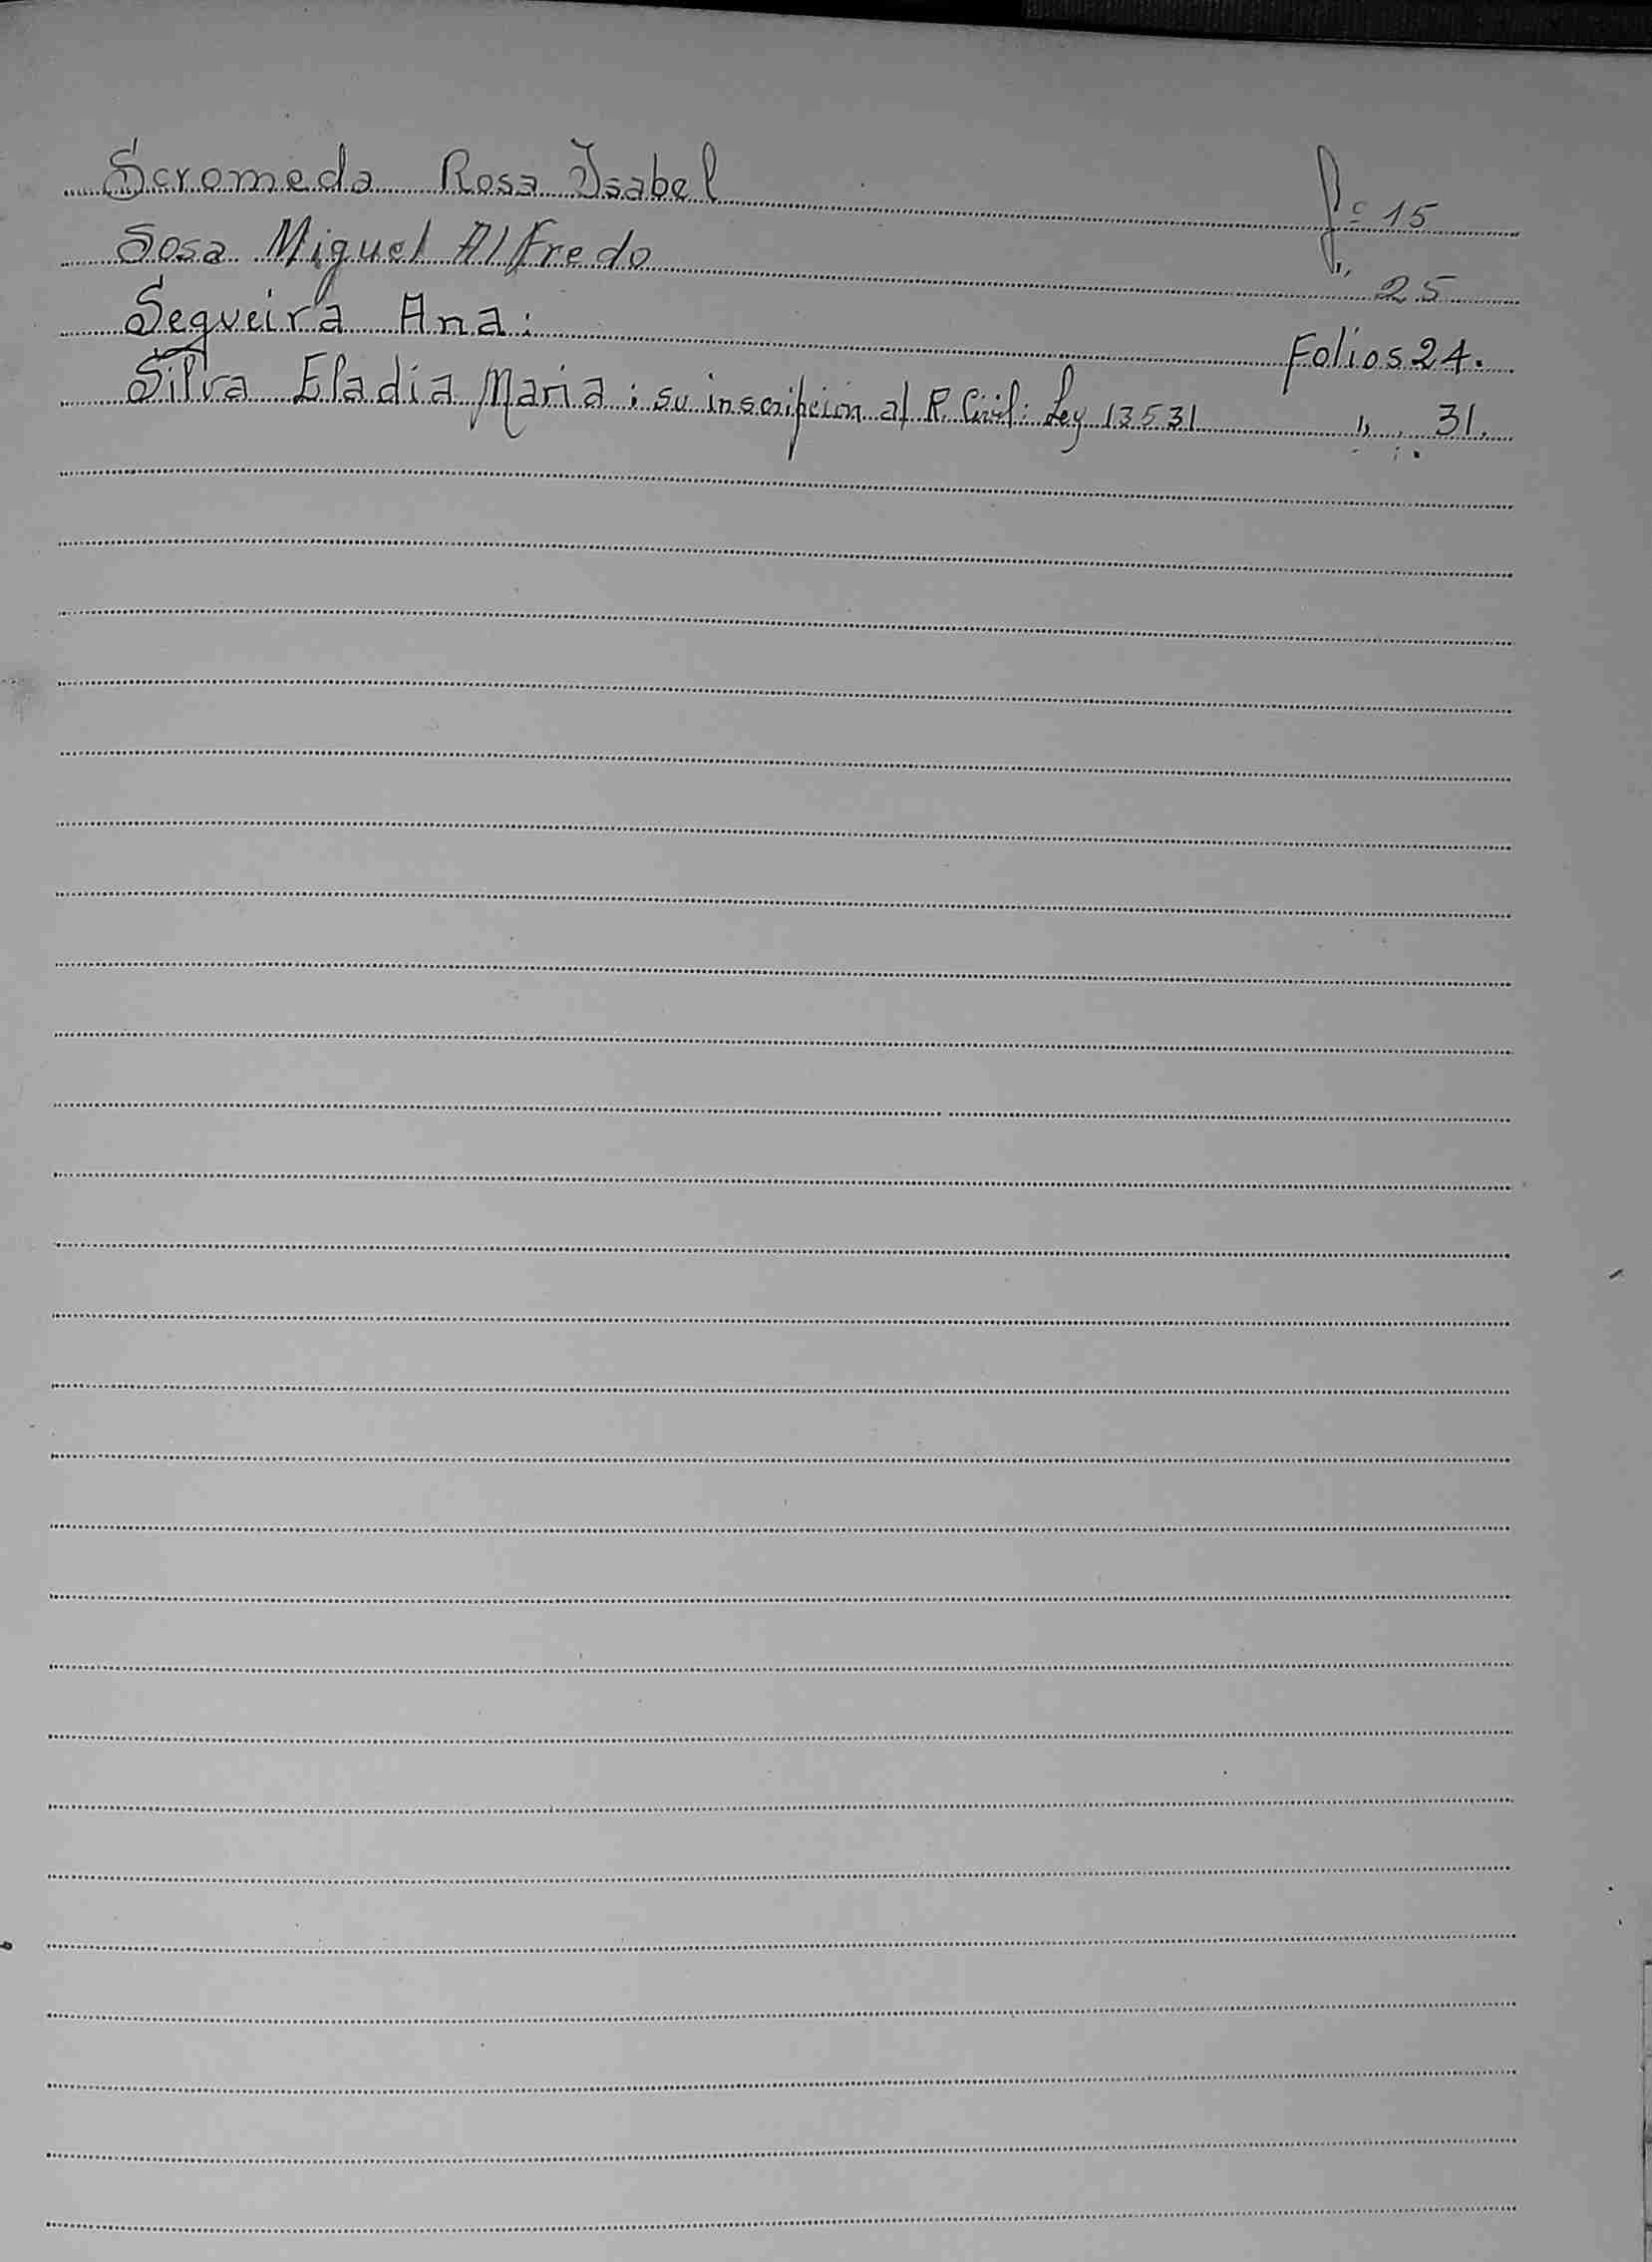 Scromeda Rosa Isabel Fº 15
Sosa Miguel Alfredo " 25
Seqveira Ana: Folios 24.
Silva Eladia Maria: su inscripción al R. Civil: Ley 13531 " 31.